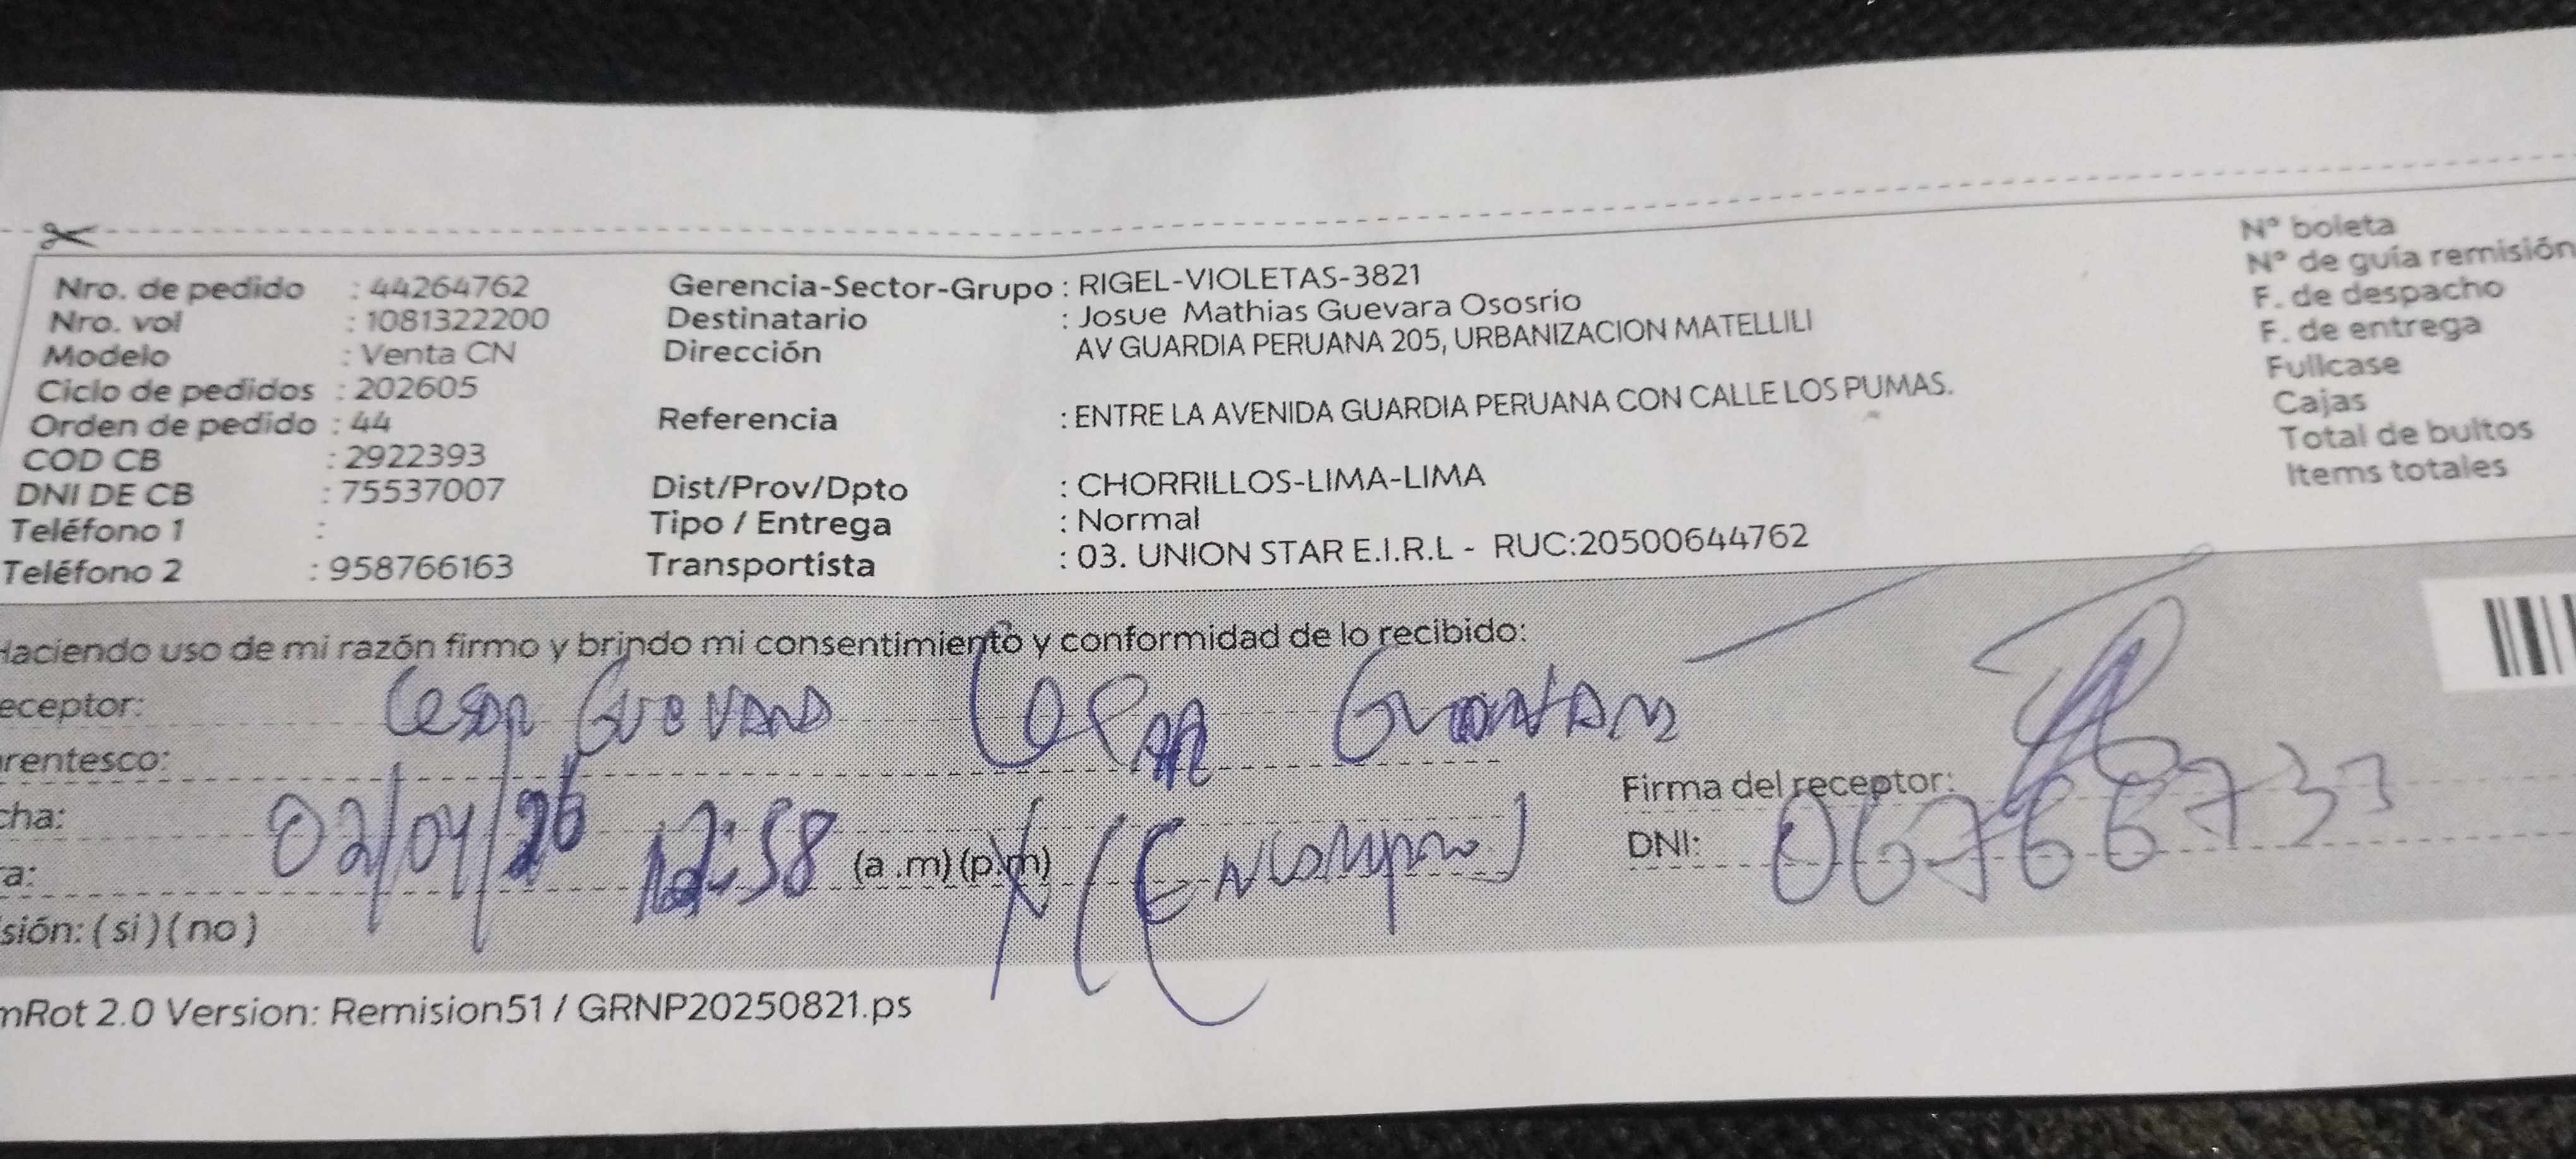 Nro. de pedido : 44264762
Nro. vol : 1081322200
Modelo : Venta CN
Ciclo de pedidos : 202605
Orden de pedido : 44
COD CB : 2922393
DNI DE CB : 75537007
Teléfono 1 :
Teléfono 2 : 958766163
Gerencia-Sector-Grupo : RIGEL-VIOLETAS-3821
Destinatario : Josue Mathias Guevara Ososrio
Dirección AV GUARDIA PERUANA 205, URBANIZACION MATELLILI
Referencia : ENTRE LA AVENIDA GUARDIA PERUANA CON CALLE LOS PUMAS.
Dist/Prov/Dpto : CHORRILLOS-LIMA-LIMA
Tipo / Entrega : Normal
Transportista : 03. UNION STAR E.I.R.L - RUC:20500644762
N° boleta
N° de guía remisión
F. de despacho
F. de entrega
Fullcase
Cajas
Total de bultos
Items totales
Haciendo uso de mi razón firmo y brindo mi consentimiento y conformidad de lo recibido:
eceptor: Cesar Guevara Cesar
rentesco:
cha: 02/04/26
a: 12:58 (a .m) (p.m)
sión: ( si ) ( no )
Firma del receptor:
DNI: 06766733
mRot 2.0 Version: Remision51 / GRNP20250821.ps